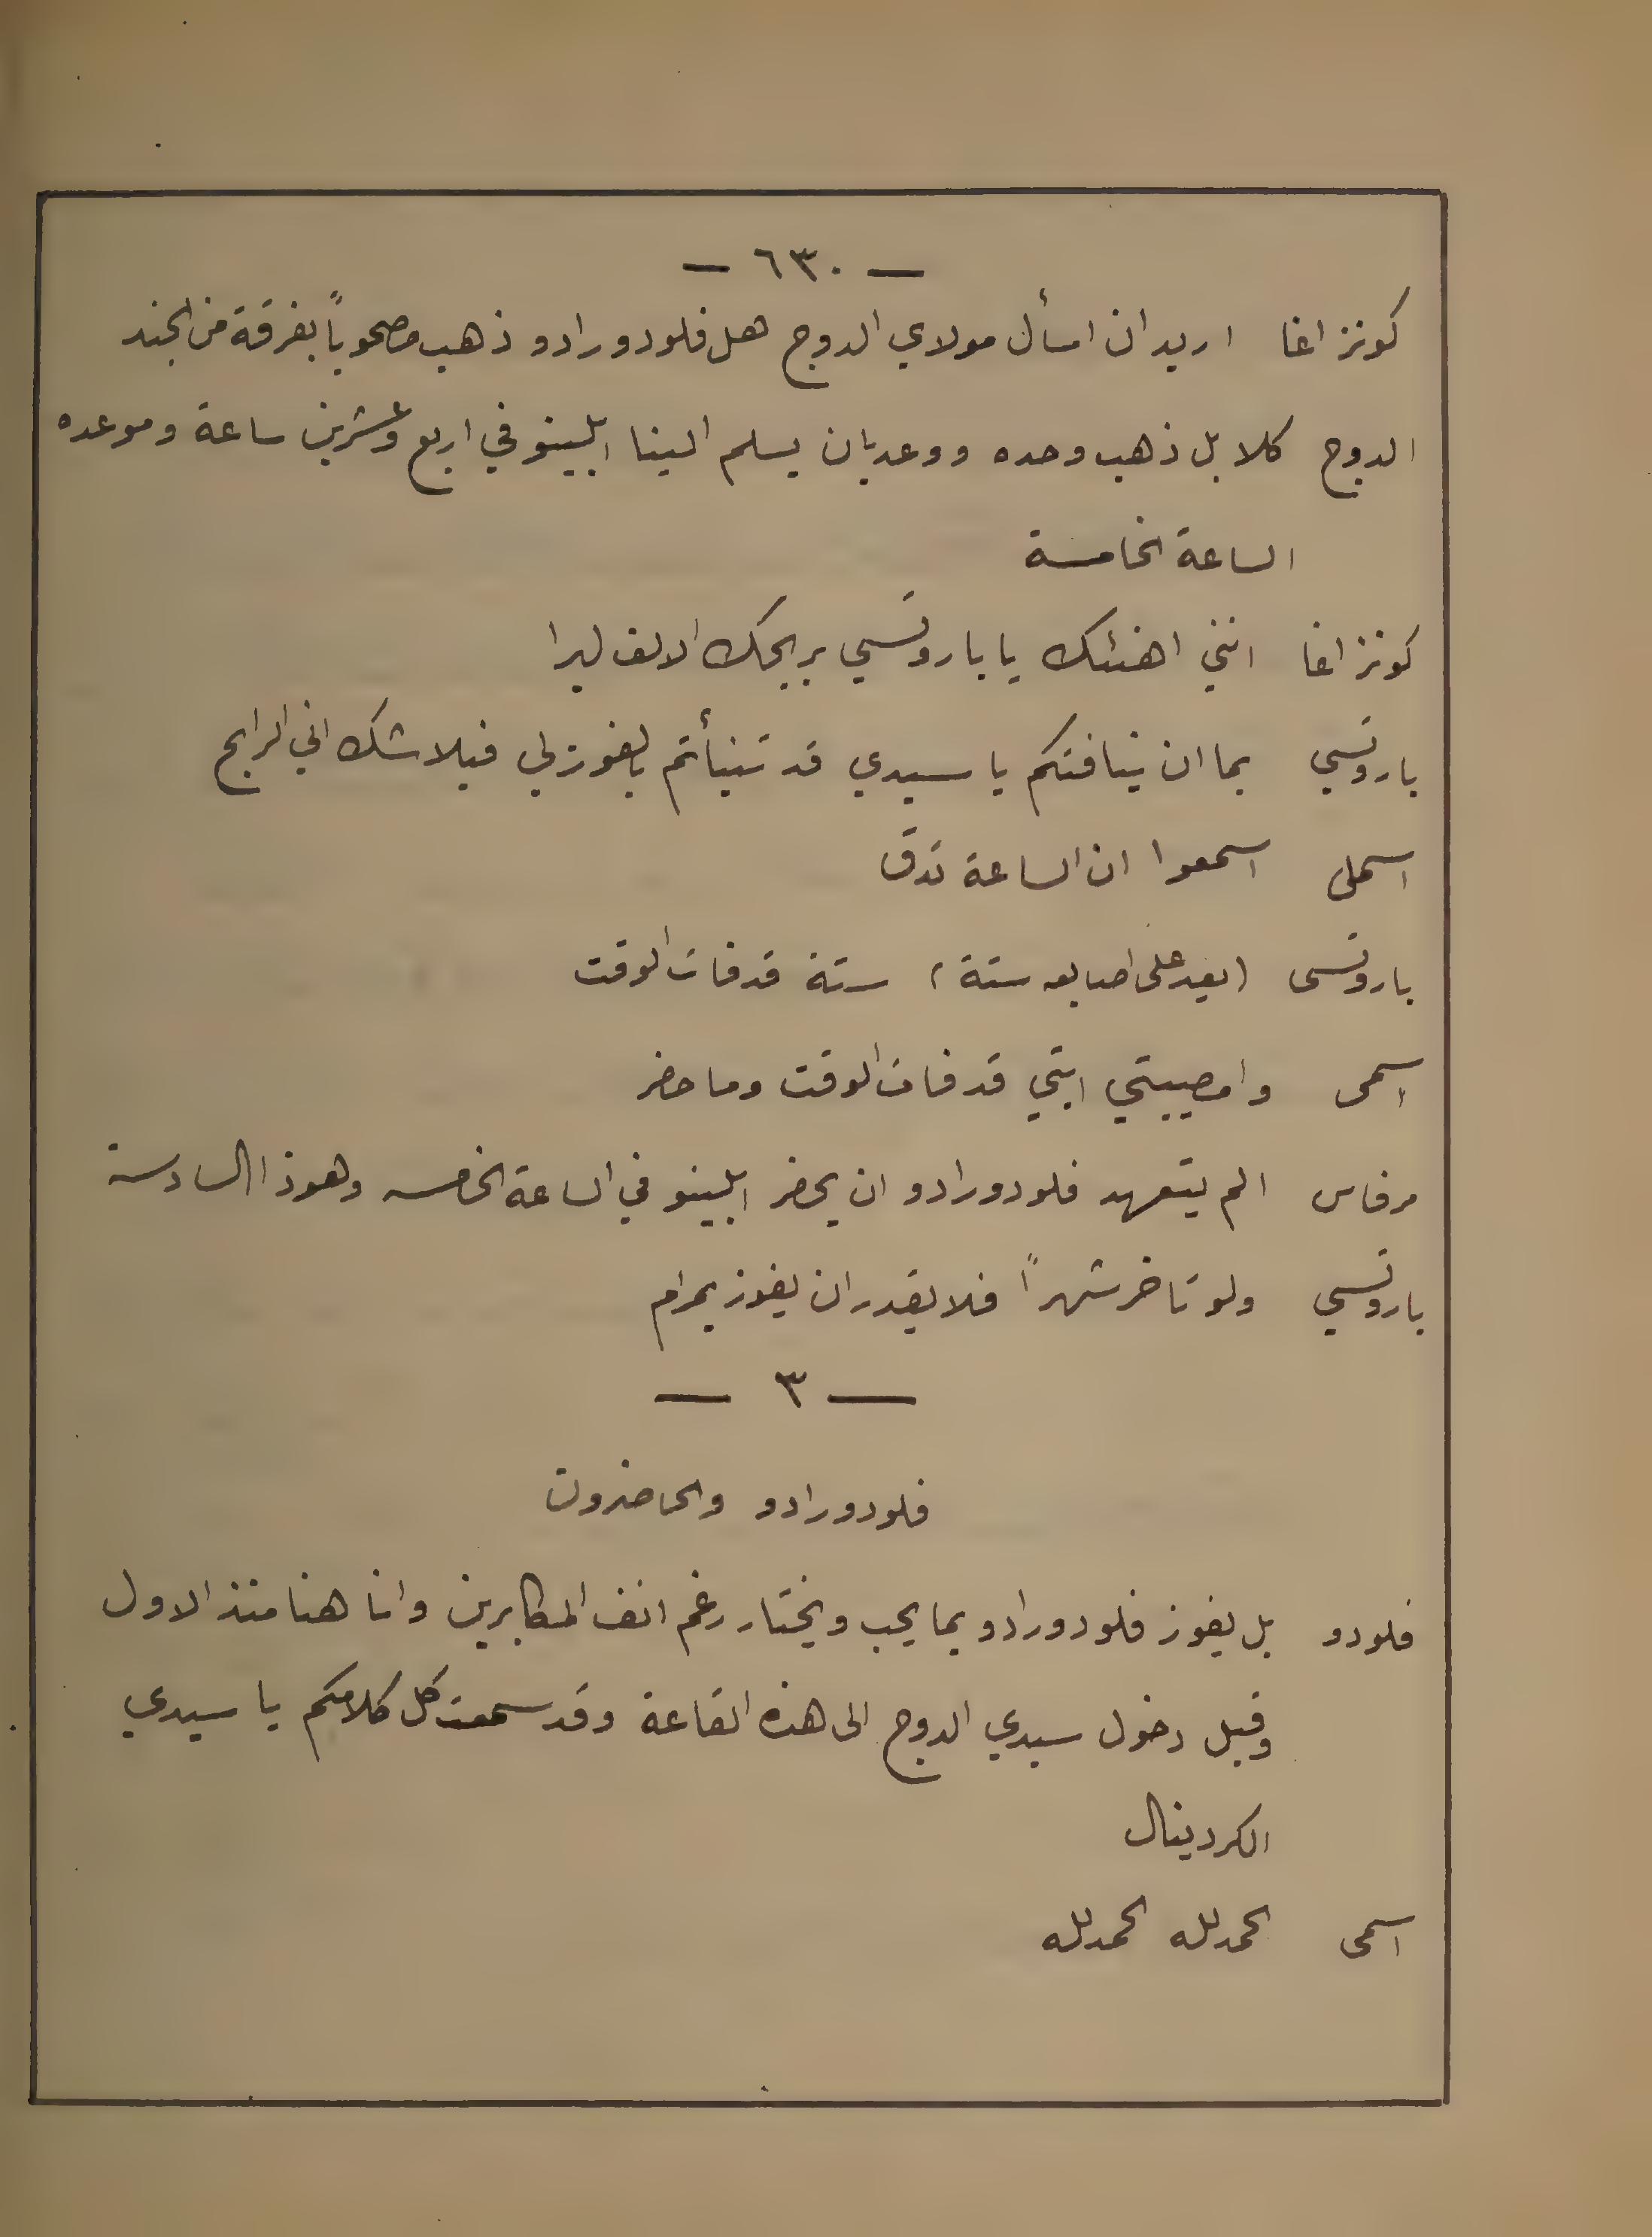 — ٦٣٠ —
كونزاغا اريد ان اسأل مولاي الدوج هل فلودورادو ذهب مصحوباً بفرقة من الجند
الدوج كلا بل ذهب وحده ووعد بان يسلم الينا ابلينو في اربع وعشرين ساعة وموعده
الساعة الخامسة
كونزاغا انني اهنئك يا باروتسي بربحك الالف ليرا
باروتسي بما ان نيافتكم يا سيدي قد تنبأتم بالفوز لي فبلا شك اني الرابح
اسملى اسمعوا ان الساعة تدق
باروتسى (يعد على اصابعه ستة) ستة قد فات الوقت
اسمى وامصيبتي ابتي قد فات الوقت وما حضر
مرفاس الم يتعهد فلودورادو ان يحضر ابلينو في الساعة الخامسه وهوذا السادسة
باروتسي ولو تاخر شهراً فلا يقدر ان يفوز بمرام
— ٣ —
فلودورادو والحاضرون
فلودو بل يفوز فلودورادو بما يحب ويختار رغم انف المكابرين وانا هنا منذ الاول
وقبل دخول سيدي الدوج الى هذه القاعة وقد سمعت كل كلامكم يا سيدي
الكردينال
اسمى الحمدلله الحمدلله